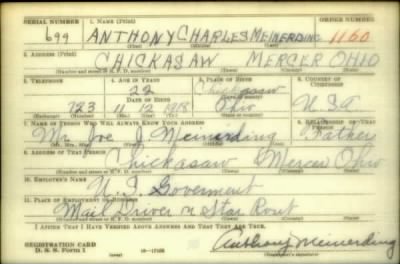 SERIAL NUMBER 1. NAME (Print) ORDER NUMBER
699 ANTHONY CHARLES MEINERDING 1160
(First) (Middle) (Last)
2. ADDRESS (Print)
CHICKASAW MERCER OHIO
(Number and street or R. F. D. number) (Town) (County) (State)
3. TELEPHONE 4. AGE IN YEARS 5. PLACE OF BIRTH 6. COUNTRY OF CITIZENSHIP
22 Chickasaw
DATE OF BIRTH (Town or county)
723 11 12 1918 Ohio USA
(Exchange) (Number) (Mo.) (Day) (Yr.) (State or country)
7. NAME OF PERSON WHO WILL ALWAYS KNOW YOUR ADDRESS 8. RELATIONSHIP OF THAT PERSON
Mr. Joe J. Meinerding Father
(Mr., Mrs., Miss) (First) (Middle) (Last)
9. ADDRESS OF THAT PERSON
Chickasaw Mercer Ohio
(Number and street or R. F. D. number) (Town) (County) (State)
10. EMPLOYER'S NAME
U.S. Goverment
11. PLACE OF EMPLOYMENT OR BUSINESS
Mail Driver on Star Rout
(Number and street or R. F. D. number) (Town) (County) (State)
I AFFIRM THAT I HAVE VERIFIED ABOVE ANSWERS AND THAT THEY ARE TRUE.
REGISTRATION CARD
D. S. S. Form 1 Anthony Meinerding